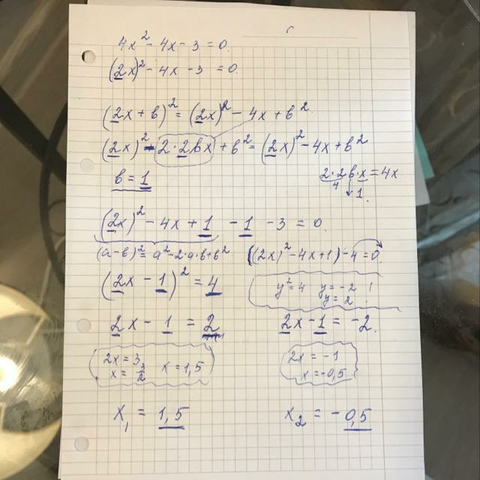 4x² - 4x - 3 = 0.
(2x)² - 4x - 3 = 0.
(2x + b)² = (2x)² - 4x + b²
(2x)² - 2·2bx + b² = (2x)² - 4x + b²
b = 1
2·2b·x = 4x
4
1.
(2x)² - 4x + 1 - 1 - 3 = 0.
(a-b)² = a² - 2·a·b + b²
((2x)² - 4x + 1) - 4 = 0
(2x - 1)² = 4
y² = 4 y = -2 !
y = 2
2x - 1 = 2
2x - 1 = -2.
2x = 3
x = 3/2 x = 1,5
2x = -1
x = -0,5
x₁ = 1,5
x₂ = -0,5